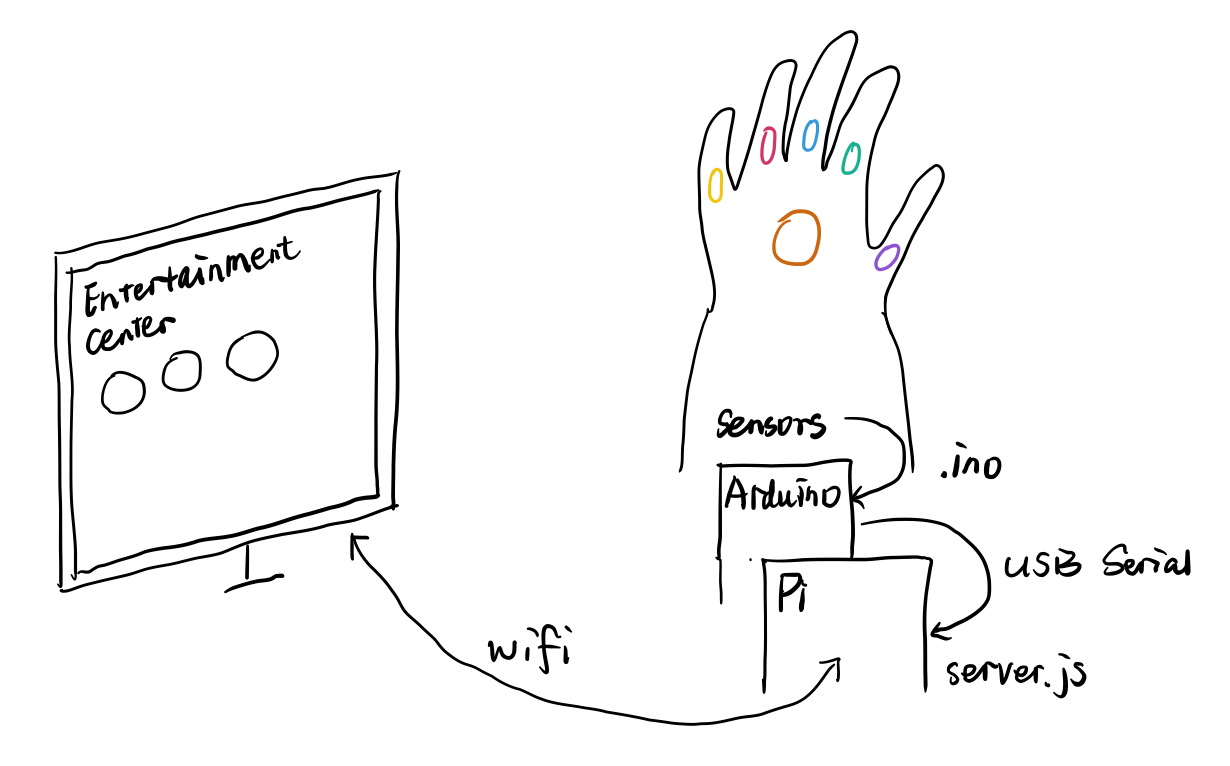 Entertainment
center
sensors
.ino
Arduino
USB Serial
Pi
wifi
server.js